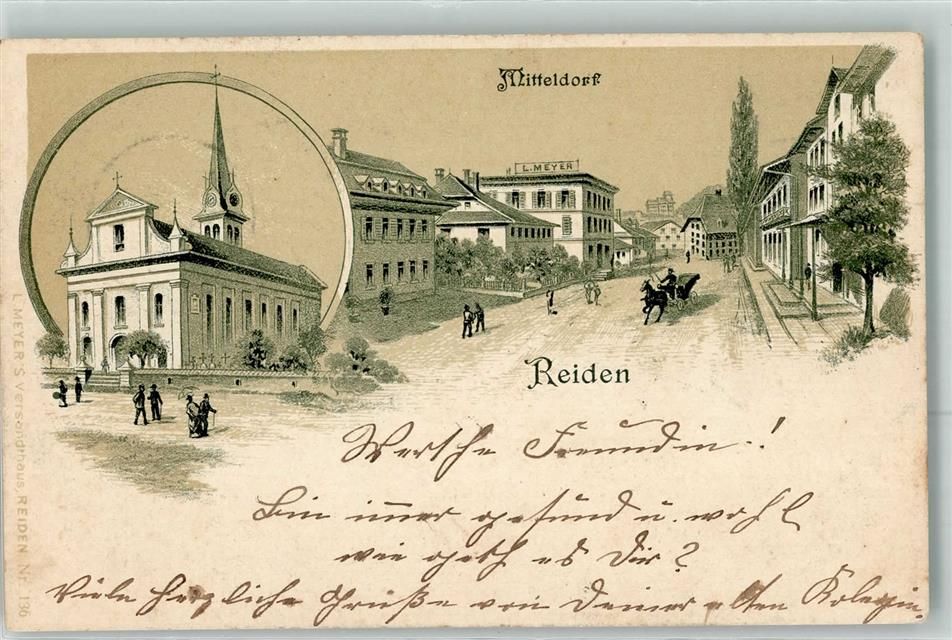 Mitteldorf
L. MEYER
Reiden
Werthe Freundin!
Bin immer gesund u. wohl
wie geth es Dir?
Viele herzliche Grüße von Deiner alten Kolegin.
L. MEYER'S Versandthaus, REIDEN Nr. 136